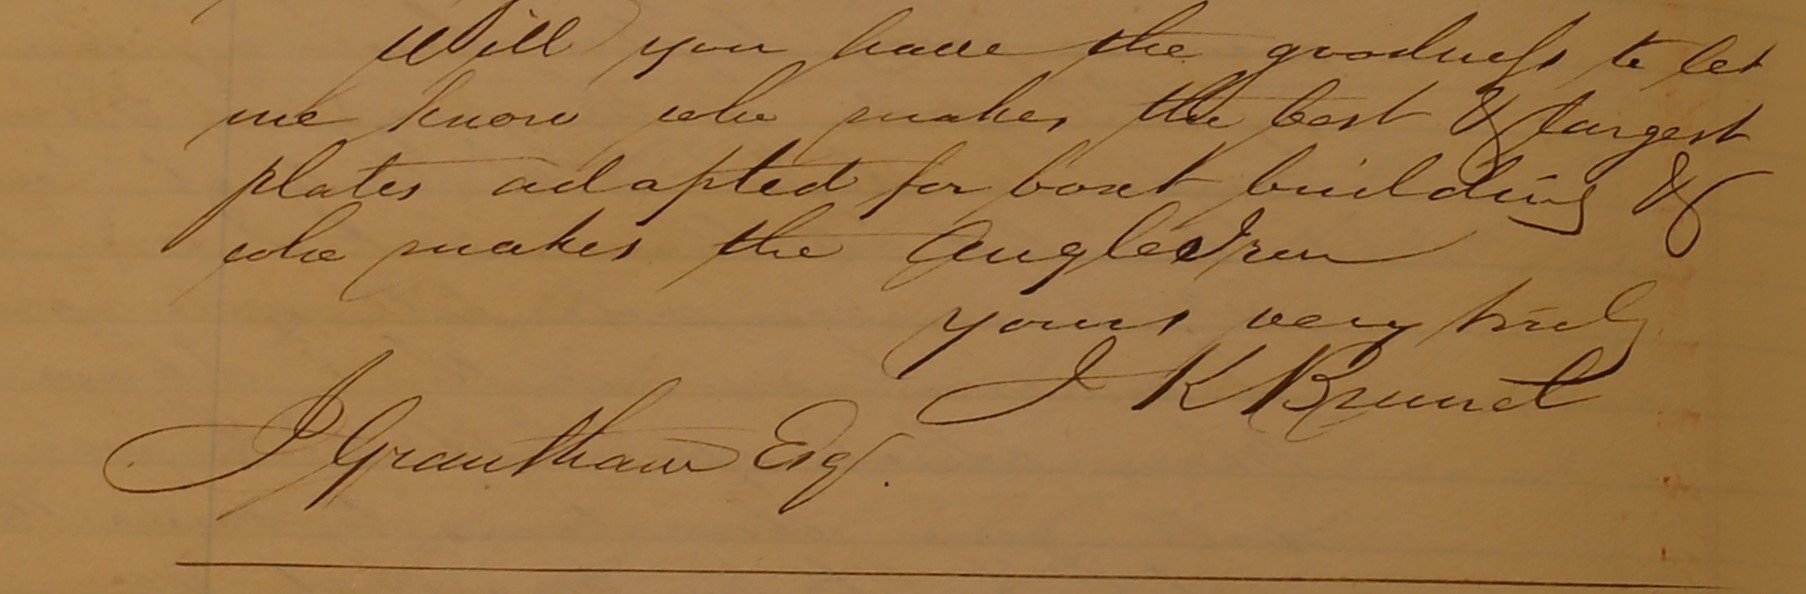 Will you have the goodness to let
me know who makes the best & largest
plates adapted for boat building &
who makes the Angle Iron
yours very truly
I K Brunel
J Grantham Esq.